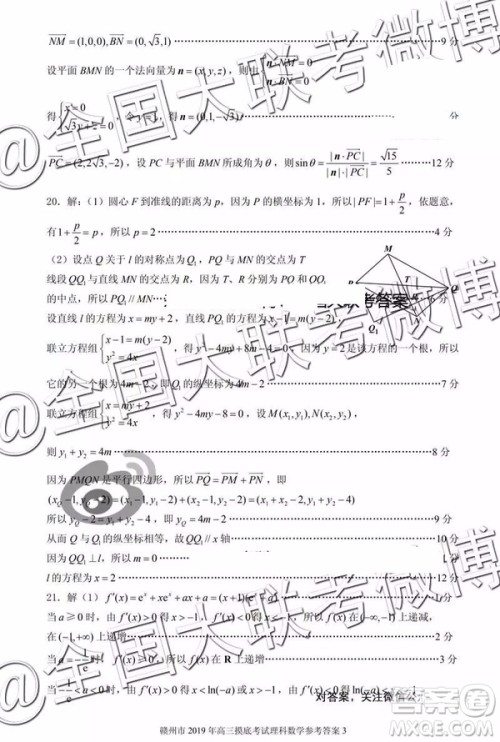 NM = (1,0,0), BN = (0,√3,1) ⋯⋯ 9 分
设平面 BMN 的一个法向量为 n = (x,y,z)，则由 NM BN
得 { x=0 √3y+z=0 得 n = (0,1,-√3) 分
PC = (2,2√3,-2)，设 PC 与平面 BMN 所成角为 θ，则 sinθ = |n·PC| / |n|·|PC| = √15/5 ⋯⋯ 12 分
20．解：（1）圆心 F 到准线的距离为 p，因为 P 的横坐标为 1，所以 |PF| = 1 + p/2，依题意，
有 1 + p/2 = p，所以 p = 2 ⋯⋯ 4 分
（2）设点 Q 关于 l 的对称点为 Q₁，PQ 与 MN 的交点为
线段 QQ₁ 与直线 MN 的交点为 R，因为 T、R 分别为 PQ 和
的中点，所以 PQ₁ // MN 6 分
M
Q
Q₁
设直线 l 的方程为 x = my + 2，则直线 PQ₁ 的方程为 x - 1 = m(y - 2)
联立方程组 { x - 1 = m(y - 2) y² = 4x，得 y² - 4my + 8m - 4 = 0，因为 y = 2 是该方程的一个根，所以
它的另一个根为 4m - 2，即 Q₁ 的纵坐标为 4m - 2 ⋯⋯ 7 分
联立方程组 { x = my + 2 y² = 4x，得 y² - 4my - 8 = 0，设 M(x₁,y₁), N(x₂,y₂)，
则 y₁ + y₂ = 4m ⋯⋯ 8 分
因为 PMQN 是平行四边形，所以 PQ = PM + PN，即
(x_Q - 1, y_Q - 2) = (x₁ - 1, y₁ - 2) + (x₂ - 1, y₂ - 2)
所以 y_Q - 2 = y₁ + y₂ - 4，即 y_Q = 4m - 2 ⋯⋯ 9 分
从而 Q 与 Q₁ 的纵坐标相等，故 QQ₁ // x 轴 ⋯⋯ 10 分
因为 QQ₁ ⊥ l，所以 m = 0 分
l 的方程为 x = 2 ⋯⋯ 12 分
21．解（1）f′(x) = eˣ + xeˣ + ax + a = (x+1)(eˣ + a) ⋯⋯ 1 分
当 a ≥ 0 时，由 f′(x) > 0 得 x > -1，由 f′(x) < 0 得 x < -1，所以 f(x) 在 (-∞,-1) 上递减，
在 (-1,+∞) 上递增 ⋯⋯ 2 分
当 a = -1/e 时，f′(x) ≥ 0，所以 f(x) 在 R 上递增 ⋯⋯ 3 分
当 -1/e < a < 0 时，由 f′(x) > 0 得 x < ln(-a)，由 f′(x) < 0 得 ln(-a) < x < -1
对答案，关注微信公
赣州市 2019 年高三摸底考试理科数学参考答案 3
@全国大联考微博
@全国大联考微博